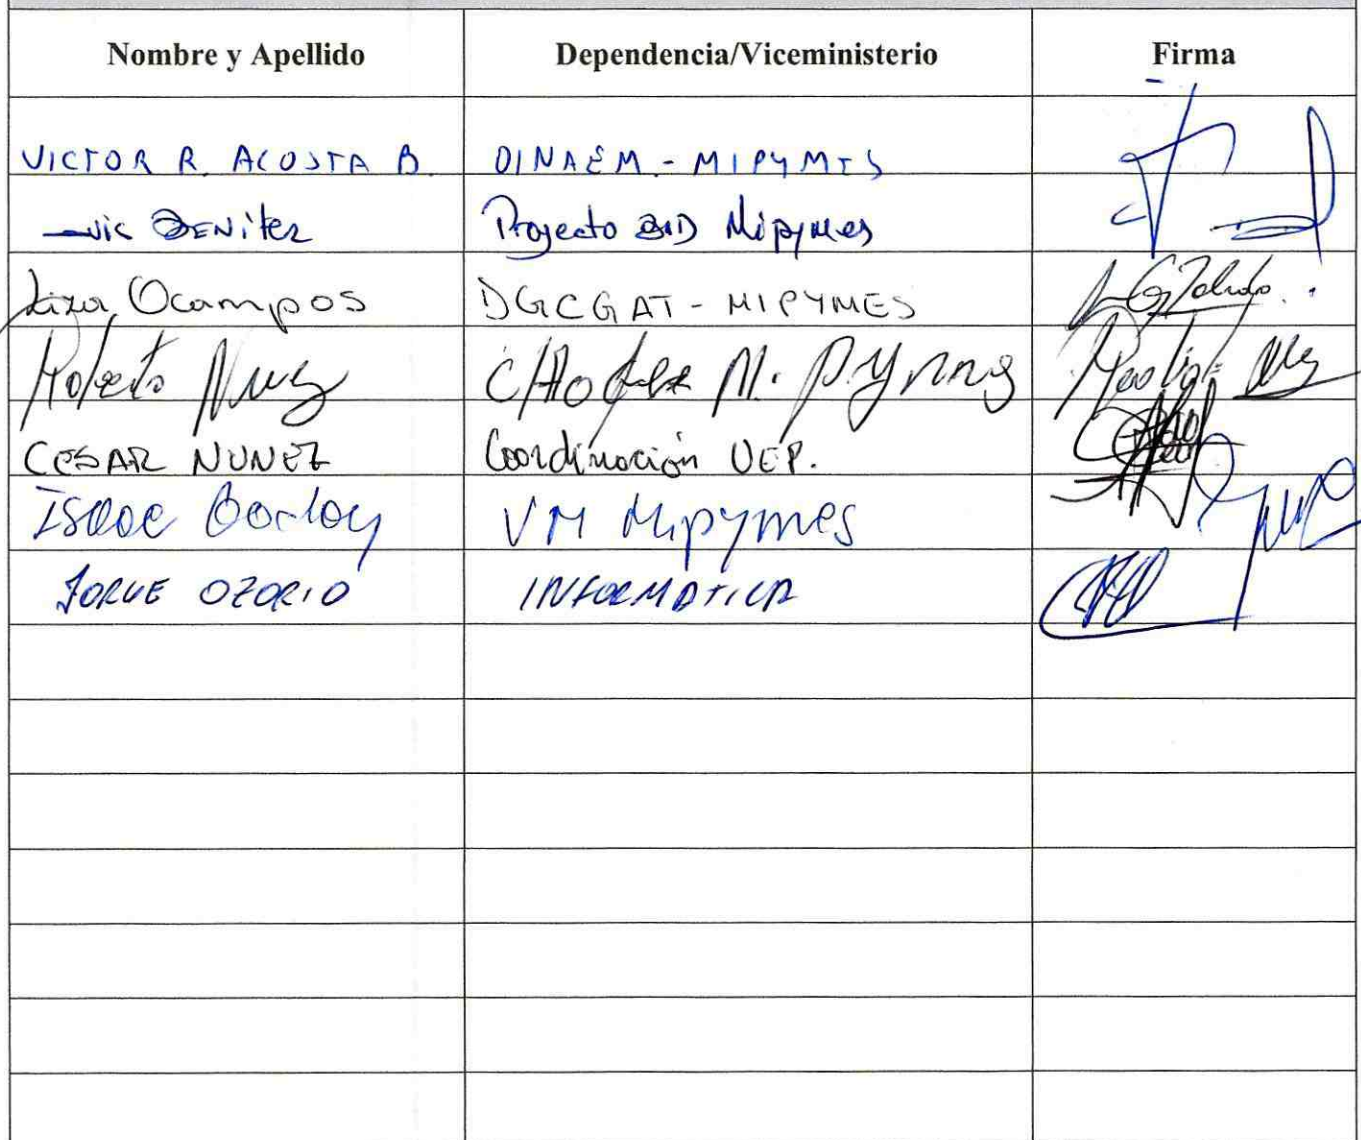 Nombre y Apellido Dependencia/Viceministerio Firma
VICTOR R. ACOSTA B. DINAEM - MIPYMES
BENitez Proyecto BID Mipymes
Liza Ocampos DGCGAT - MIPYMES
Roberto CHofer M.
CESAR NUNEZ Coordinación UEP.
ISAAC VM Mipymes
JORGE OZORIO INFORMATICA